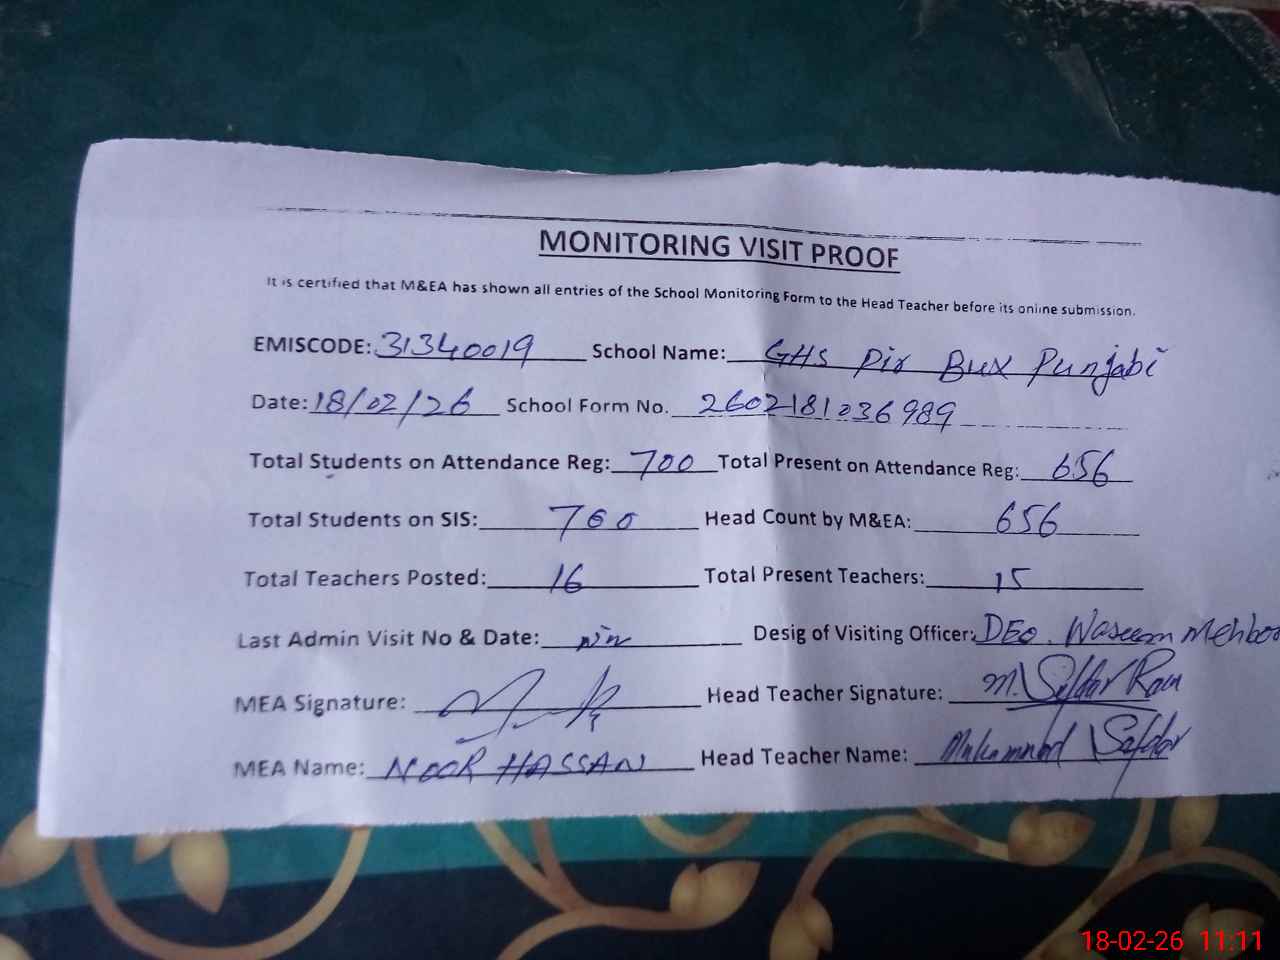 MONITORING VISIT PROOF
It is certified that M&EA has shown all entries of the School Monitoring Form to the Head Teacher before its online submission.
EMISCODE: 31340019 School Name: GHS Pir Bux Punjabi
Date: 18/02/26 School Form No. 2602181036989
Total Students on Attendance Reg: 700 Total Present on Attendance Reg: 656
Total Students on SIS: 700 Head Count by M&EA: 656
Total Teachers Posted: 16 Total Present Teachers: 15
Last Admin Visit No & Date: Desig of Visiting Officer: DEO. Waseem Mehboo
MEA Signature: Head Teacher Signature: M. Safdar
MEA Name: NOOR HASSAN Head Teacher Name: Muhammad Safdar
18-02-26 11:11